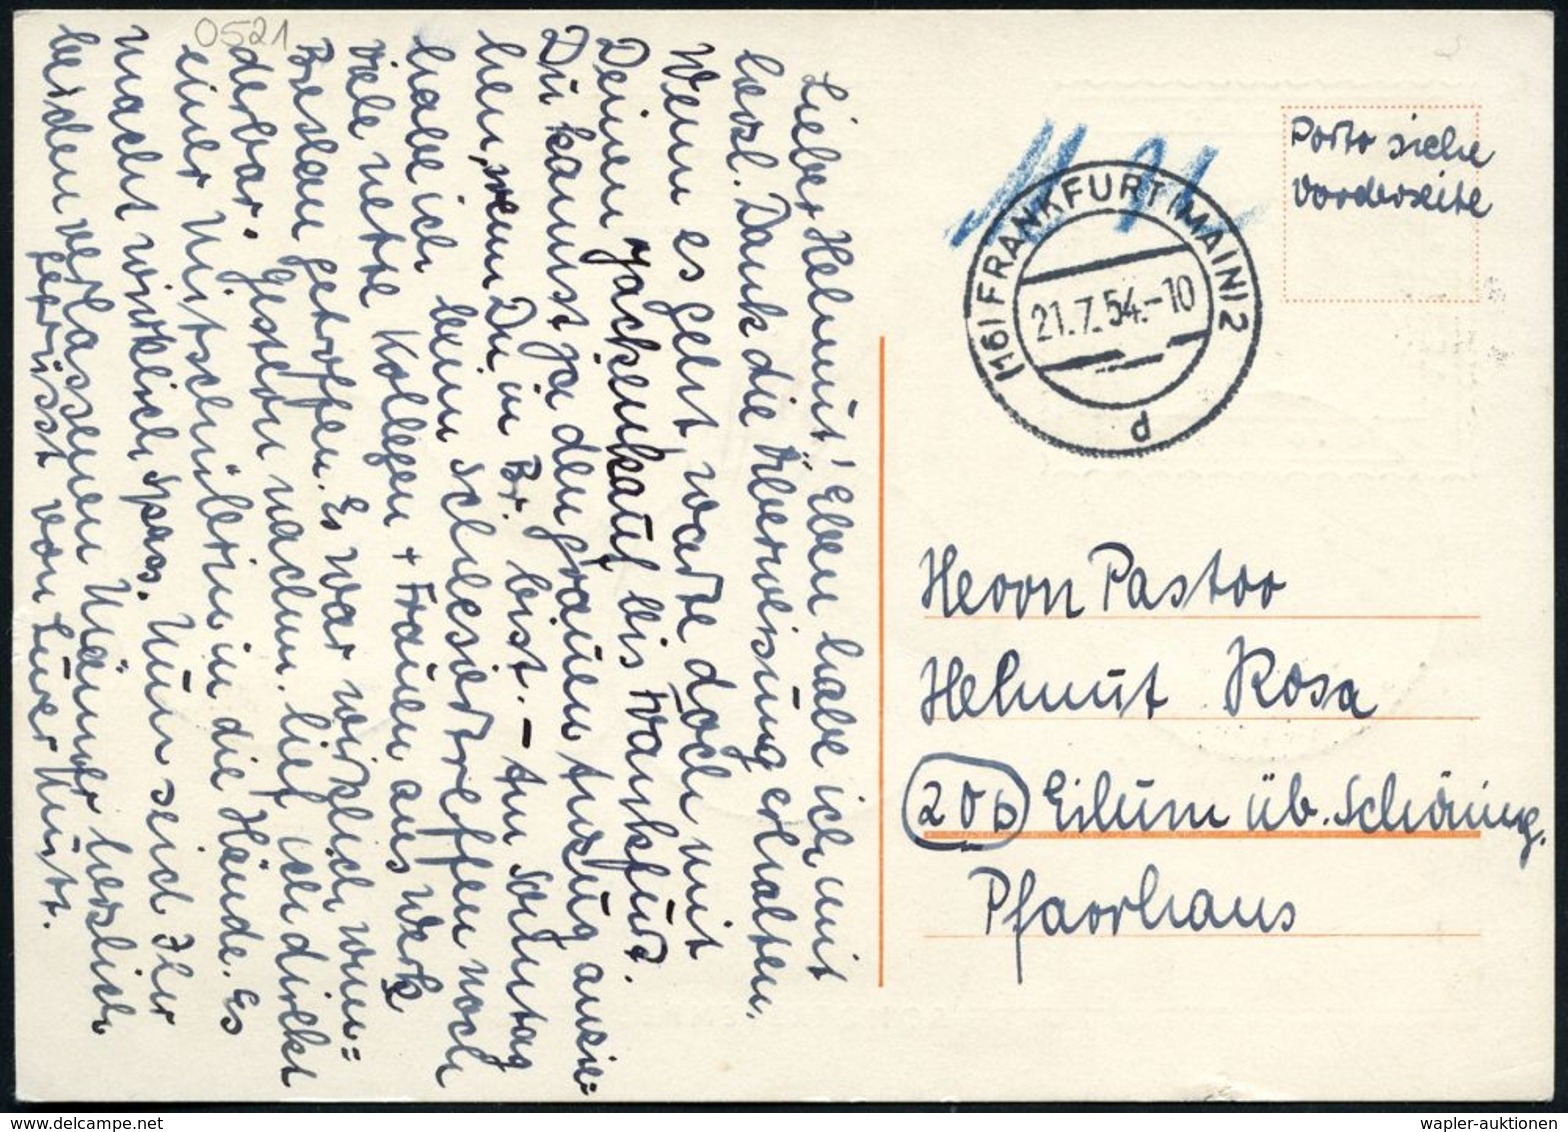 0521
Lieber Helmut! Eben habe ich mit
herzl. Dank die Überweisung erhalten.
Wenn es geht, warte doch mit
Deinem Jackenkauf bis Frankfurt.
Du kannst ja den grauen Anzug anzie=
hen, wenn Du in Br. bist. – Am Sonntag
habe ich beim Schlesiertreffen noch
viele nette Kollegen + Frauen aus Werk
Breslau getroffen. Es war wirklich wun=
derbar. Gestern nachm. lief ich direkt
einer Mitschülerin in die Hände. Es
macht wirklich Spass. Nun seid Ihr
beiden verlassenen Männer herzlich
gegrüsst von Eurer Must.
Porto siehe
Vorderseite
(16) FRANKFURT (MAIN) 2
21.7.54.-10
d
Herrn Pastor
Helmut Rosa
20b Eilum üb. Schöning.
Pfarrhaus
wapler-auktionen